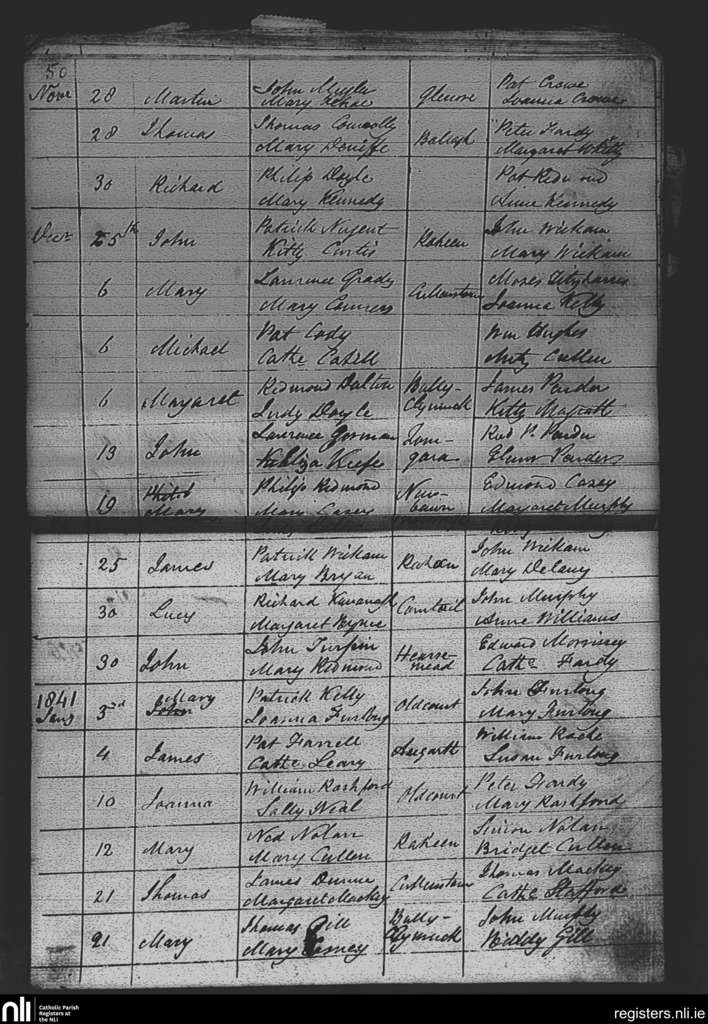 50
Novr 28 Martin John Mary Glenore Pat Crowe Joanna Crowe
28 Thomas Thomas Connolly Mary Ballagh Peter Hardy Margaret Whitty
30 Richard Philip Doyle Mary Kennedy Pat Redmond Anne Kennedy
Decr 25th John Patrick Nugent Kitty Curtis Raheen John Wickam Mary Wickam
6 Mary Laurence Grady Mary Connors Moses Joanna Kelly
6 Michael Pat Cody Cathe Cahill Wm Hughes Cullen
6 Margaret Redmond Dalton Judy Doyle Bally- James Kitty Magrath
13 John Laurence Gorman Eliza Keefe Tom- gara Red
19 Mary Philip Redmond Mary Casey New- bawn Edmond Casey Margaret Murphy
25 James Patrick Wickam Mary Bryan Raheen John Wickam Mary Delany
30 Lucy Richard Kavanagh Margaret John Murphy Anne Williams
30 John John Turpin Mary Redmond mead Edward Morrissey Cathe Hardy
1841
Jany 3rd Mary John Patrick Kelly Joanna Furlong Oldcourt John Furlong Mary Furlong
4 James Pat Farrell Cathe Leary William Susan Furlong
10 Joanna William Rashford Sally Neal Oldcourt Peter Hardy Mary Rashford
12 Mary Ned Nolan Mary Cullen Raheen Simon Nolan Bridget Cullen
21 Thomas James Dunne Margaret Mackey Thomas Mackey Cathe Stafford
21 Mary Thomas Gill Mary Bally- John Murphy Biddy Gill
nli
Catholic Parish
Registers at
the NLI
registers.nli.ie